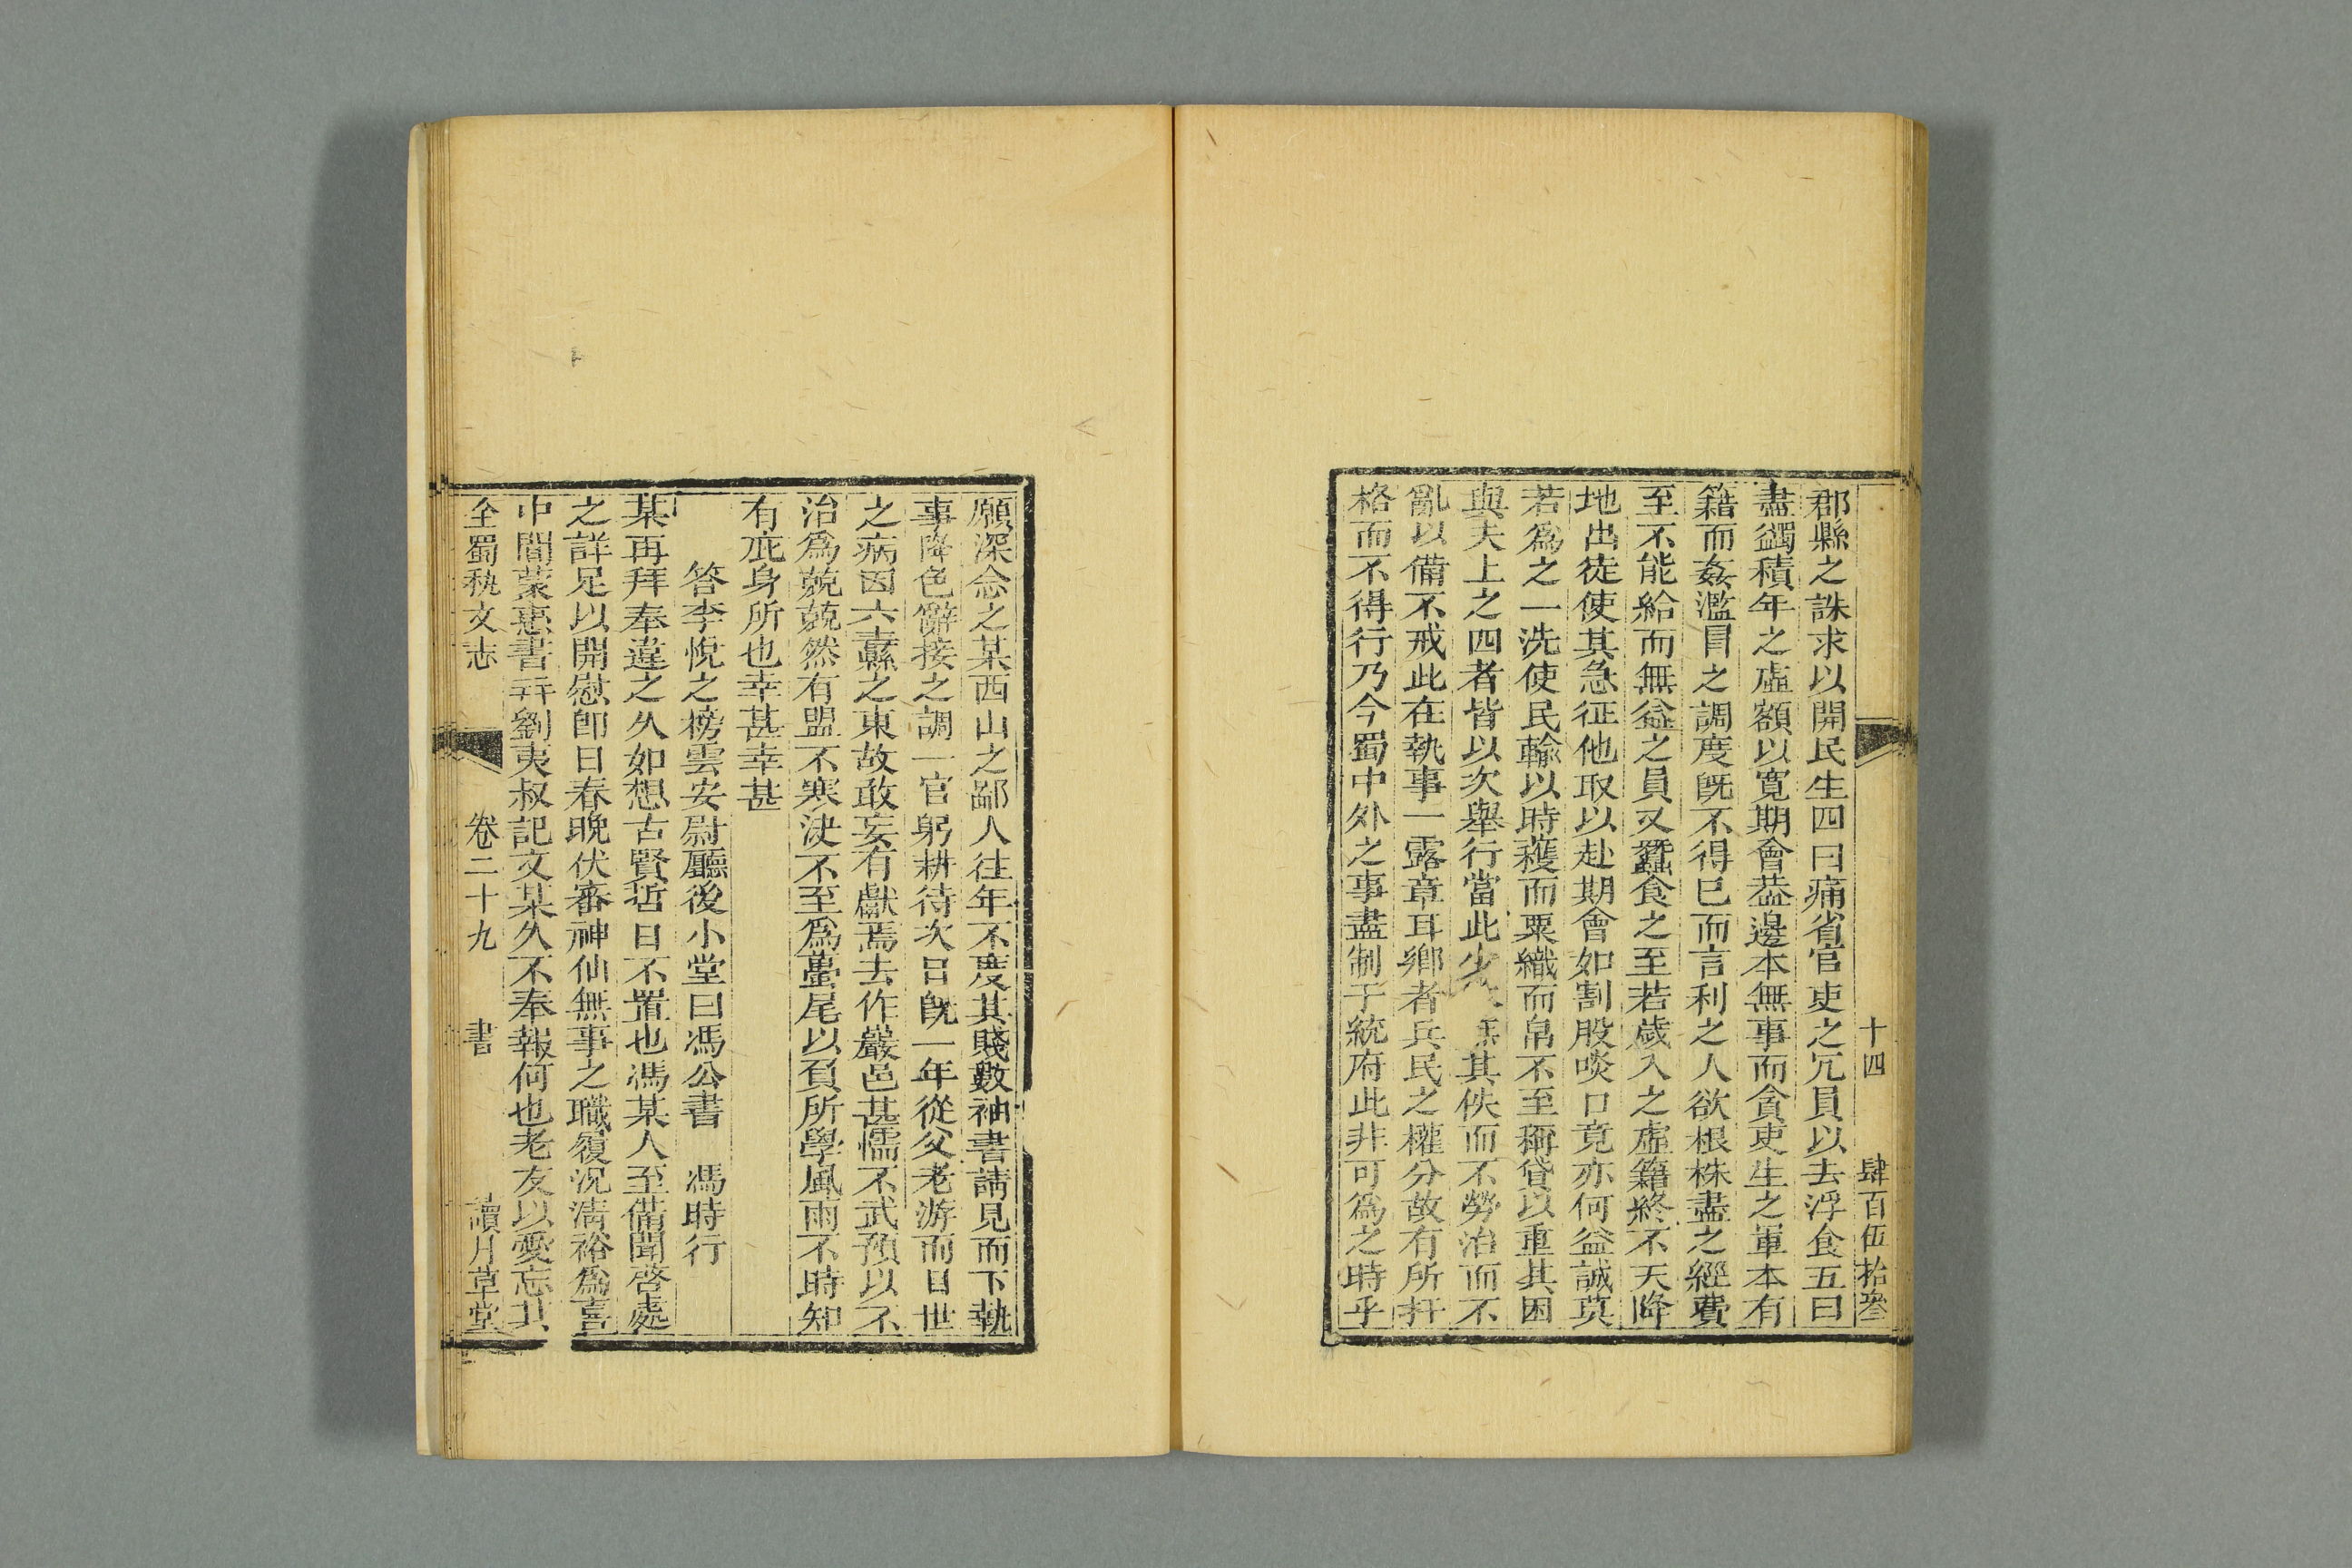 十四　肆百伍拾叄
郡縣之誅求以開民生四曰痛省官吏之冗員以去浮食五曰
盡蠲積年之虛額以寬期會葢邊本無事而貪吏生之軍本有
籍而姦濫冒之調度旣不得已而言利之人欲根株盡之經費
至不能給而無益之員又蠶食之至若歲入之虛籍終不天降
地出徒使其急征他取以赴期會如割股啖口竟亦何益誠莫
若爲之一洗使民輸以時穫而粟織而帛不至稱貸以重其困
與夫上之四者皆以次舉行當此少 無其佚而不勞治而不
亂以備不戒此在執事一露章耳鄉者兵民之權分故有所扞
格而不得行乃今蜀中外之事盡制于統府此非可爲之時乎
願深念之某西山之鄙人往年不度其賤數袖書請見而下執
事降色辭接之調一官躬耕待次日旣一年從父老游而日世
之病因六繇之東故敢妄有獻焉去作巖邑甚懦不武預以不
治爲兢兢然有盟不寒決不至爲蠆尾以負所學風雨不時知
有庇身所也幸甚幸甚
答李悅之榜雲安尉廳後小堂曰馮公書　馮時行
某再拜奉違之久如想古賢哲日不置也馮某人至備聞啓處
之詳足以開慰卽日春晚伏審神仙無事之職履況清裕爲喜
中間蒙惠書幷劉夷叔記文某久不奉報何也老友以愛忘其
全蜀秇文志　卷二十九　書　讀月草堂